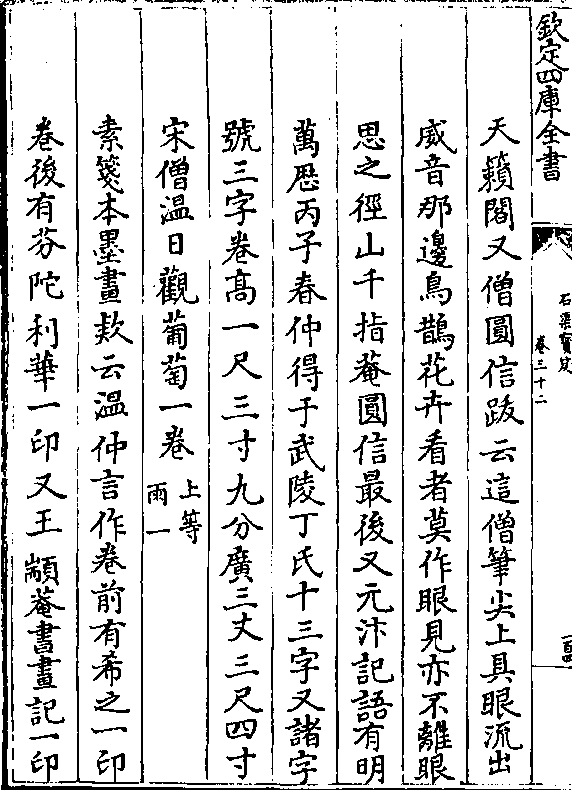 欽定四庫全書
石渠寶笈
卷三十二
天籟閣又僧圓信跋云這僧筆尖上具眼流出
威音那邊鳥鵲花卉看者莫作眼見亦不離眼
思之徑山千指菴圓信最後又元汴記語有明
萬歴丙子春仲得于武陵丁氏十三字又諸字
號三字卷髙一尺三寸九分廣三丈三尺四寸
宋僧温日觀葡萄一卷
上等
雨一
素箋本墨畫欵云温仲言作卷前有希之一印
卷後有芬陀利華一印又王顓菴書畫記一印